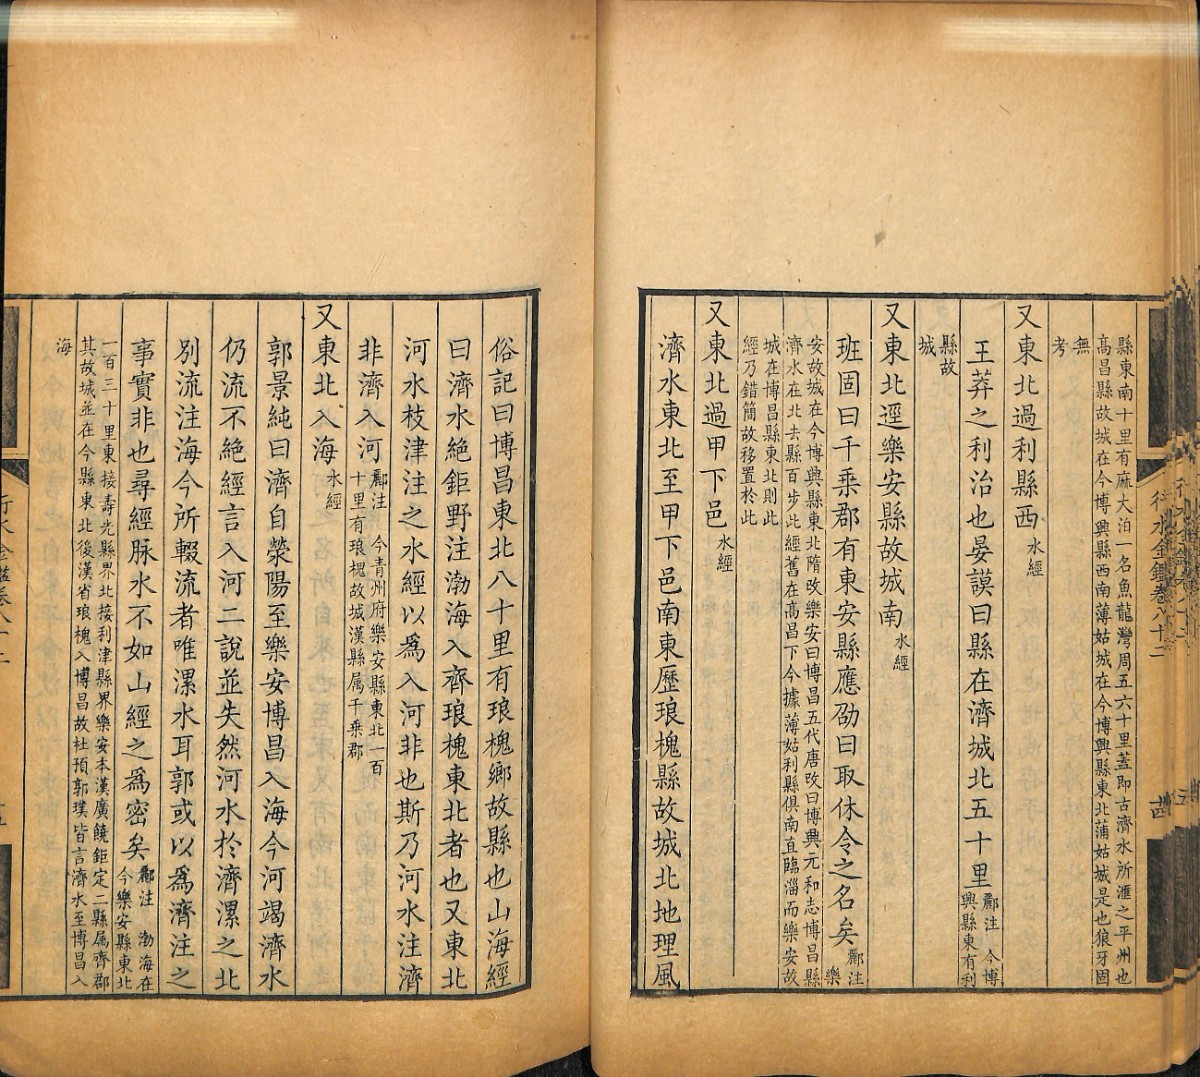 縣東南十里有麻大泊一名魚龍灣周五六十里蓋即古濟水所滙之平州也
高昌縣故城在今博興縣西南薄姑城在今博興縣東北蒲姑城是也狼牙固
無
考
又東北過利縣西水經
王莽之利治也晏謨曰縣在濟城北五十里酈注 今博
興縣東有利
縣故
城
又東北逕樂安縣故城南水經
班固曰千乘郡有東安縣應劭曰取休令之名矣酈注
樂
安故城在今博興縣東北隋改樂安曰博昌五代唐改曰博興元和志博昌縣
濟水在北去縣百步此經舊在高昌下今據薄姑利縣俱南直臨淄而樂安故
城在博昌縣東北則此
經乃錯簡故移置於此
又東北過甲下邑水經
濟水東北至甲下邑南東歷琅槐縣故城北地理風
俗記曰博昌東北八十里有琅槐鄉故縣也山海經
曰濟水絕鉅野注渤海入齊琅槐東北者也又東北
河水枝津注之水經以為入河非也斯乃河水注濟
非濟入河酈注 今青州府樂安縣東北一百
十里有琅槐故城漢縣属千乗郡
又東北入海水經
郭景純曰濟自滎陽至樂安博昌入海今河竭濟水
仍流不絕經言入河二說並失然河水於濟漯之北
別流注海今所輟流者唯漯水耳郭或以為濟注之
事實非也尋經脉水不如山經之為密矣酈注 渤海在
今樂安縣東北
一百三十里東接壽光縣界北接利津縣界樂安本漢廣饒鉅定二縣属齊郡
其故城並在今縣東北後漢省琅槐入博昌故杜預郭璞皆言濟水至博昌入
海
行水金鑑卷八十二